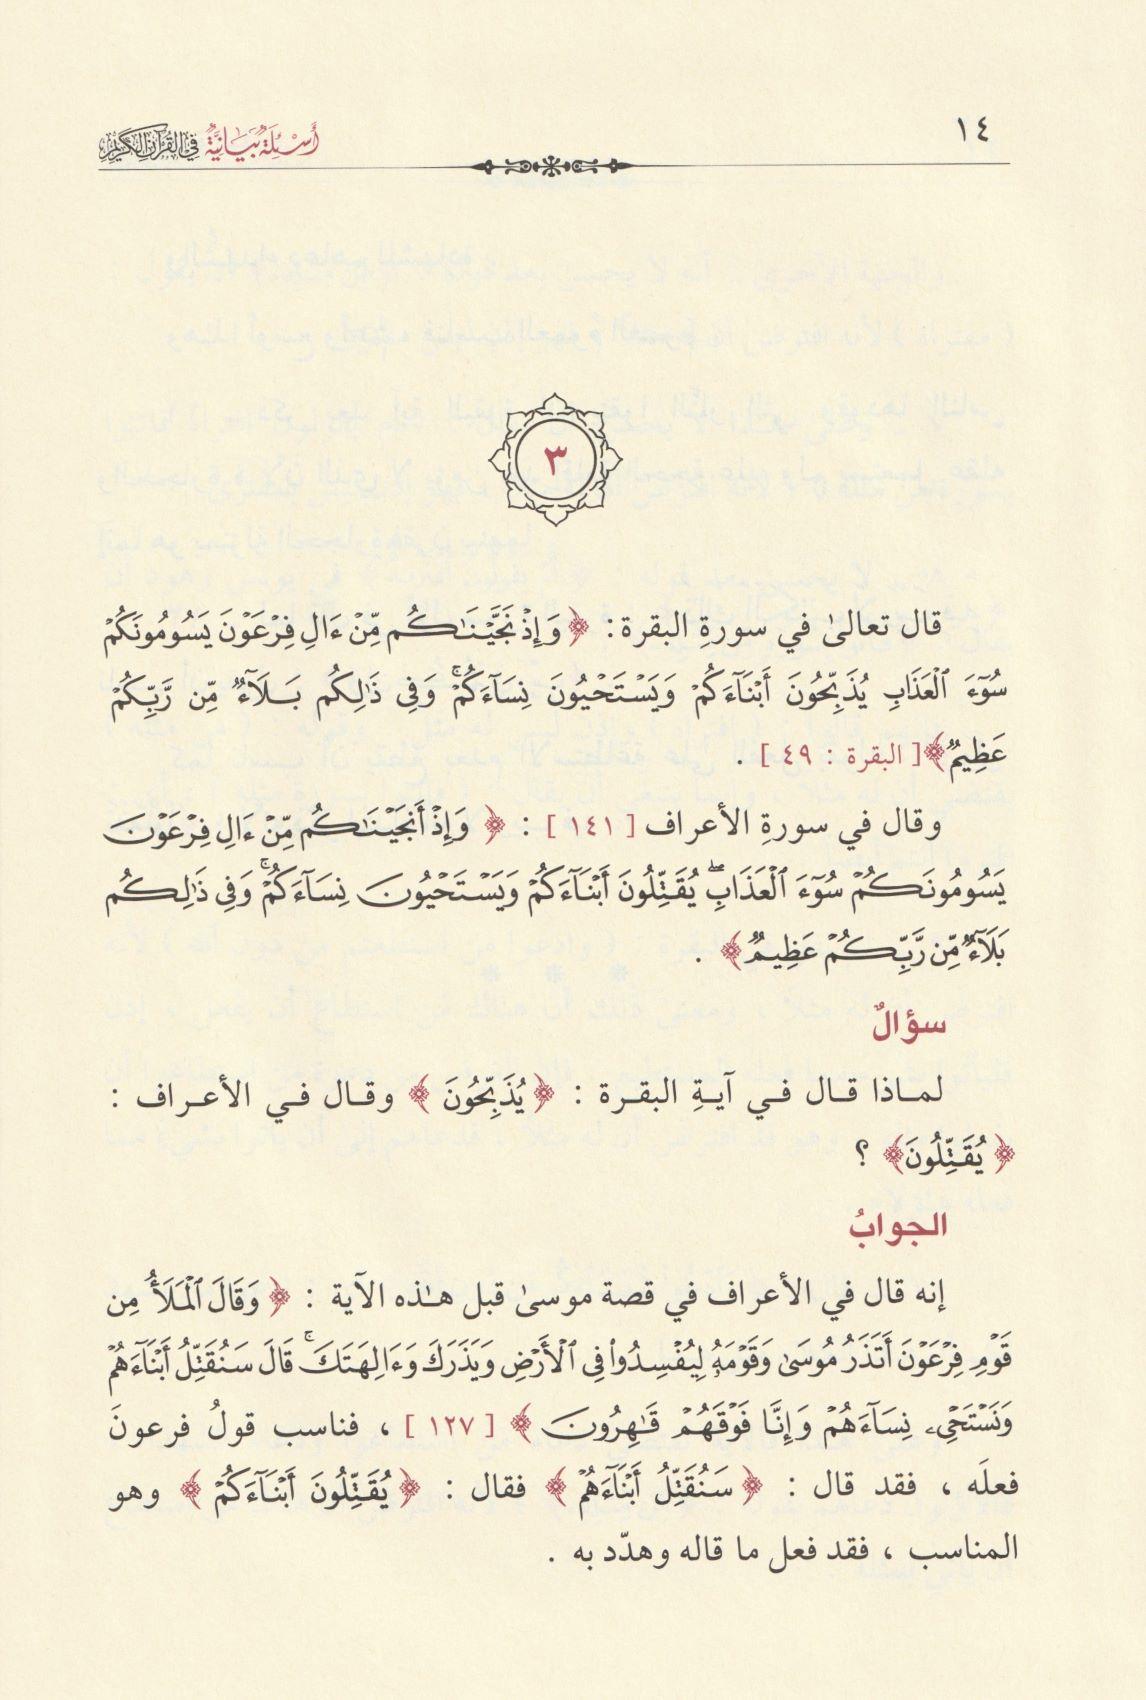 ١٤
أَسْئِلَةٌ بَيَانِيَّةٌ فِي القُرْآنِ الكَرِيْمِ
٣
قال تعالىٰ في سورةِ البقرة: ﴿ وَإِذْ نَجَّيْنَٰكُم مِّنْ ءَالِ فِرْعَوْنَ يَسُومُونَكُمْ
سُوٓءَ ٱلْعَذَابِ يُذَبِّحُونَ أَبْنَآءَكُمْ وَيَسْتَحْيُونَ نِسَآءَكُمْ ۚ وَفِى ذَٰلِكُم بَلَآءٌ مِّن رَّبِّكُمْ
عَظِيمٌ ﴾ [ البقرة : ٤٩ ] .
وقال في سورةِ الأعراف [ ١٤١ ] : ﴿ وَإِذْ أَنجَيْنَٰكُم مِّنْ ءَالِ فِرْعَوْنَ
يَسُومُونَكُمْ سُوٓءَ ٱلْعَذَابِ ۖ يُقَتِّلُونَ أَبْنَآءَكُمْ وَيَسْتَحْيُونَ نِسَآءَكُمْ ۚ وَفِى ذَٰلِكُم
بَلَآءٌ مِّن رَّبِّكُمْ عَظِيمٌ ﴾ .
سؤالٌ
لماذا قال في آيةِ البقرة : ﴿ يُذَبِّحُونَ ﴾ وقال في الأعراف :
﴿ يُقَتِّلُونَ ﴾ ؟
الجوابُ
إنه قال في الأعراف في قصة موسىٰ قبل هٰذه الآية : ﴿ وَقَالَ ٱلْمَلَأُ مِن
قَوْمِ فِرْعَوْنَ أَتَذَرُ مُوسَىٰ وَقَوْمَهُۥ لِيُفْسِدُوا۟ فِى ٱلْأَرْضِ وَيَذَرَكَ وَءَالِهَتَكَ ۚ قَالَ سَنُقَتِّلُ أَبْنَآءَهُمْ
وَنَسْتَحْىِۦ نِسَآءَهُمْ وَإِنَّا فَوْقَهُمْ قَٰهِرُونَ ﴾ [ ١٢٧ ] ، فناسب قولُ فرعونَ
فعلَه ، فقد قال : ﴿ سَنُقَتِّلُ أَبْنَآءَهُمْ ﴾ فقال : ﴿ يُقَتِّلُونَ أَبْنَآءَكُمْ ﴾ وهو
المناسب ، فقد فعل ما قاله وهدّد به .